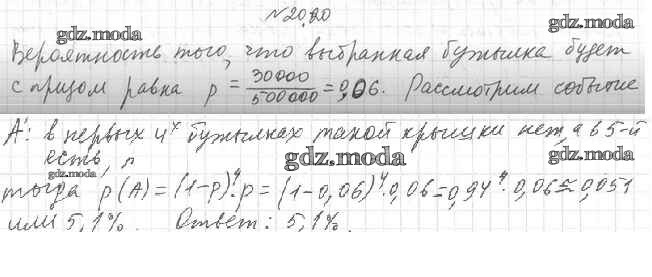 №20.20
gdz.moda
gdz.moda
Вероятность того, что выбранная бутылка будет
с призом равна p = 30000/500000 = 0,06. Рассмотрим событие
A: в первых 4х бутылках такой крышки нет, а в 5-й
gdz.moda
gdz.moda
есть,
gdz.moda
тогда p(A) = (1-p)⁴·p = (1-0,06)⁴·0,06 = 0,94⁴·0,06 ≈ 0,051
или 5,1%. Ответ: 5,1%.